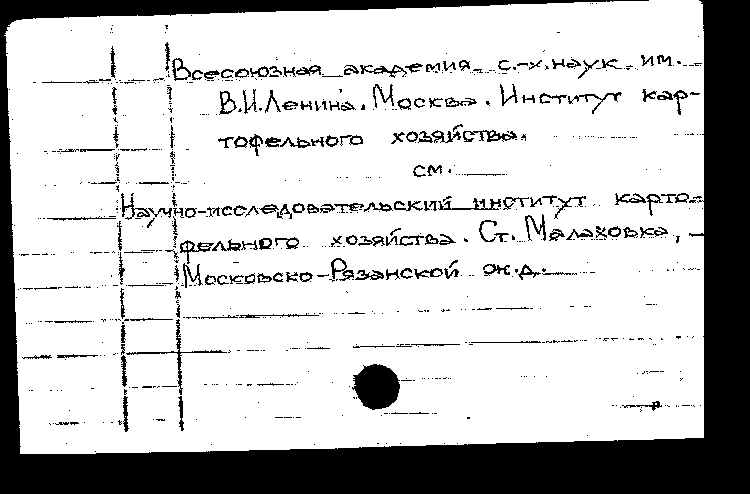 Всесоюзная академия с.-х.наук им.
В.И.Ленина. Москва. Институт кар-
тофельного хозяйства.
см.
Научно-исследовательский институт карто-
фельного хозяйства. Ст. Малаховка,
Московско-Рязанской ж.д.